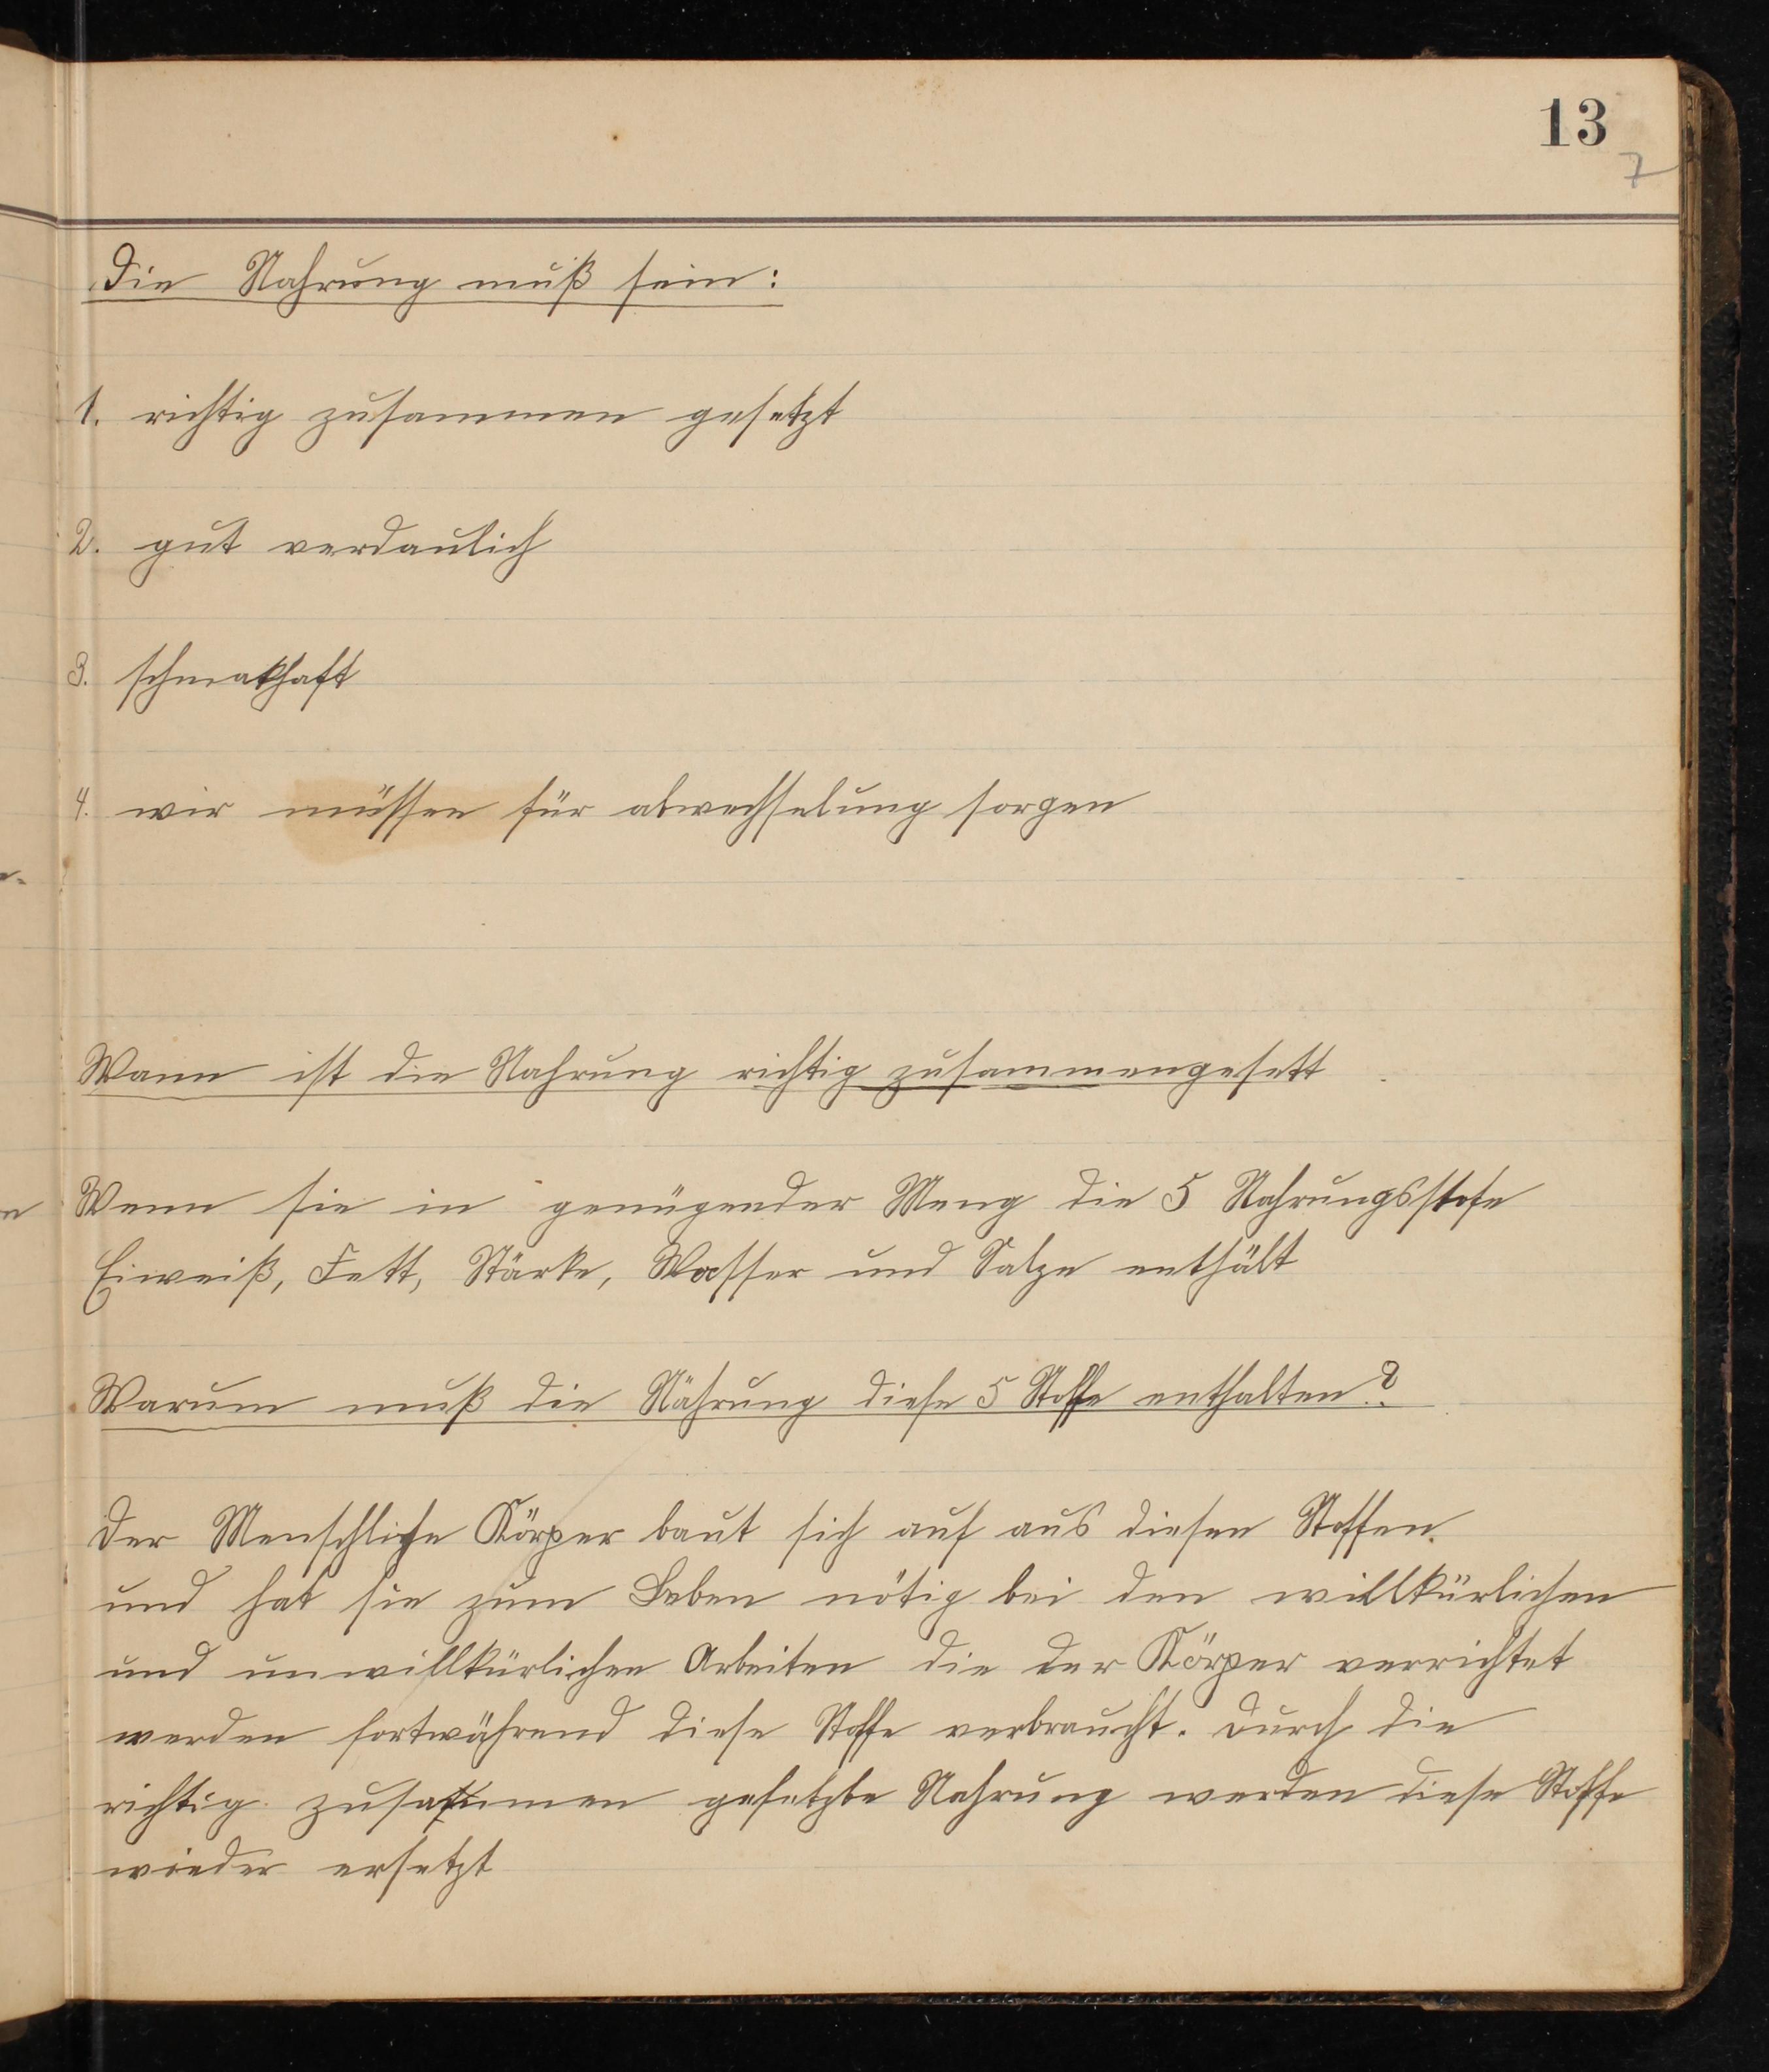 13
7
Die Nahrung muß sein:
1. richtig zusammen gesetzt
2. gut verdaulich
3. schmakhaft
4. wir müssen für abwechselung sorgen
Wann ist die Nahrung richtig zusammengesett
Wenn sie in genügender Meng die 5 Nahrungsstofe
Eiweiß, Fett, Stärke, Wasser und Salze enthält
Warum muß die Nährung diese 5 Stoffe enthalten?
Der Menschliche Körper baut sich auf aus diesen Stoffen.
und hat sie zum Leben nötig bei den willkürlichen
und unwillkürlichen Arbeiten die der Körper verrichtet
werden fortwährend diese Stoffe verbraucht. Durch die
richtig zusammen gesetzte Nahrung werden diese Stoffe
wieder ersetzt